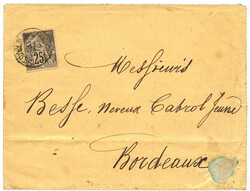 Messieurs
Besse, Neveux Cabrol Jeune
Bordeaux
25